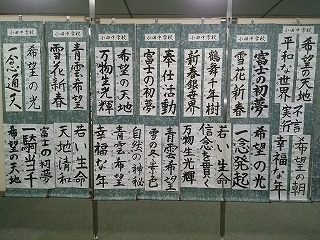 小田中学校
小田中学校
小田中学校
小田中学校
希望の天地
平和な世界
富士の初夢
雪花新春
鶴舞千年樹
新春銀世界
奉仕活動
富士の初夢
希望の天地
万物生光輝
青雲希望
雪花新春
希望の光
一念通天
不言実行
希望の朝
幸福な年
希望の光
一念発起
若い生命
信念を貫く
万物生光輝
青雲希望
自然の神秘
青雲希望
幸福な年
若い生命
天地清和
富士の初夢
一騎当千
希望の天地